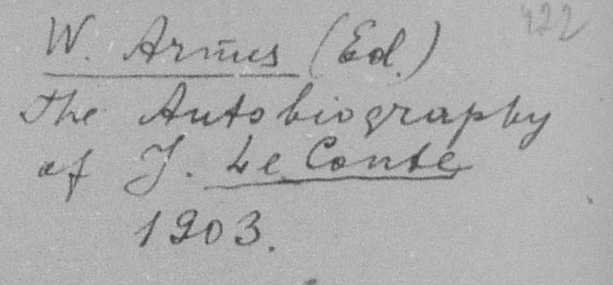 W. Armes (Ed.) 422
The Autobiography
of J. Le Conte
1903.